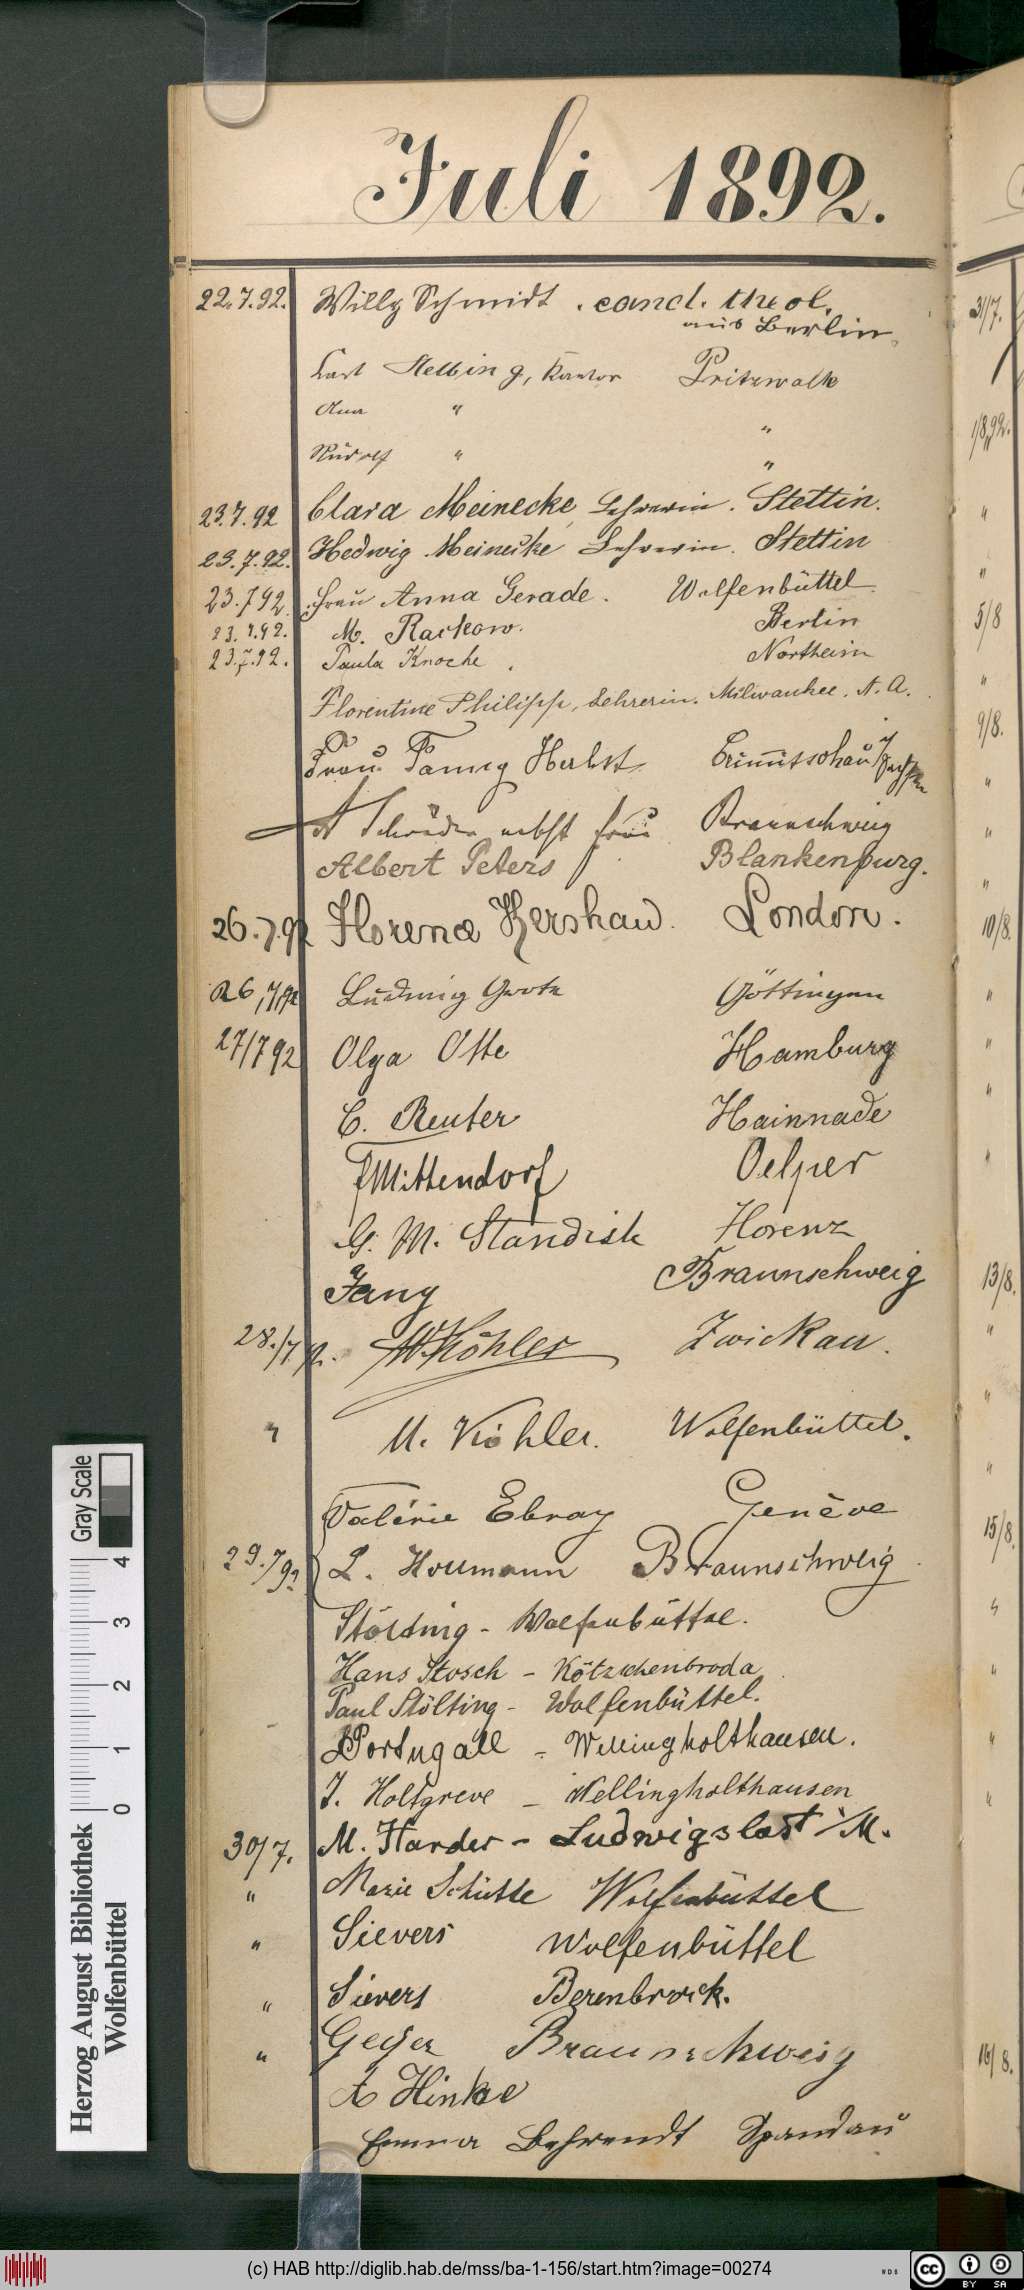 Juli 1892.
22.7.92. Willy Schmidt. cand. theol.
aus Berlin.
Carl Helbing, Kantor Pritzwalk
" "
Rudolf " "
23.7.92 Clara Meinecke Lehrerin. Stettin.
23.7.92. Hedwig Meinecke Lehrerin. Stettin
23.7.92. Frau Anna Gerade. Wolfenbüttel.
23.7.92. M. Rackow. Berlin
23.7.92. Paula Knoche. Northeim
Florentine Philipp, Lehrerin. Milwaukee. N. A.
Frau Fanny Herbst Crimmitschau i/Sachsen
A Schröder nebst Frau Braunschweig
Albert Peters Blankenburg.
26.7.92 Florence Kershaw. London.
26/7/92 Ludwig Grote Göttingen
27/7 92 Olga Otte Hamburg
C. Reuter
Mittendorf Oelper
G. M. Standish Florenz
Braunschweig
28./7. W. Köhler Zwickau.
" M. Köhler. Wolfenbüttel.
Valérie Ebray Genève
29.7/92 Braunschweig
Stölting - Wolfenbüttel.
Hans Stosch - Kötzschenbroda
Paul Stölting - Wolfenbüttel.
Portugall - Wellingholthausen.
J. Holtgreve - Wellingholthausen
30/7. M. Harder - Ludwigslust i/M.
" Marie Schütte Wolfenbüttel
" Sievers Wolfenbüttel
" Sievers Berenbrock.
" Geyer Braunschweig
A Hinke
Emma Behrendt Spandau
31/7.
1/8.92.
"
"
5/8
"
9/8.
"
"
"
10/8.
"
"
"
"
13/8.
"
"
"
15/8.
"
"
"
"
16/8.
Gray Scale
0 1 2 3 4
Herzog August Bibliothek
Wolfenbüttel
(c) HAB http://diglib.hab.de/mss/ba-1-156/start.htm?image=00274
cc BY SA